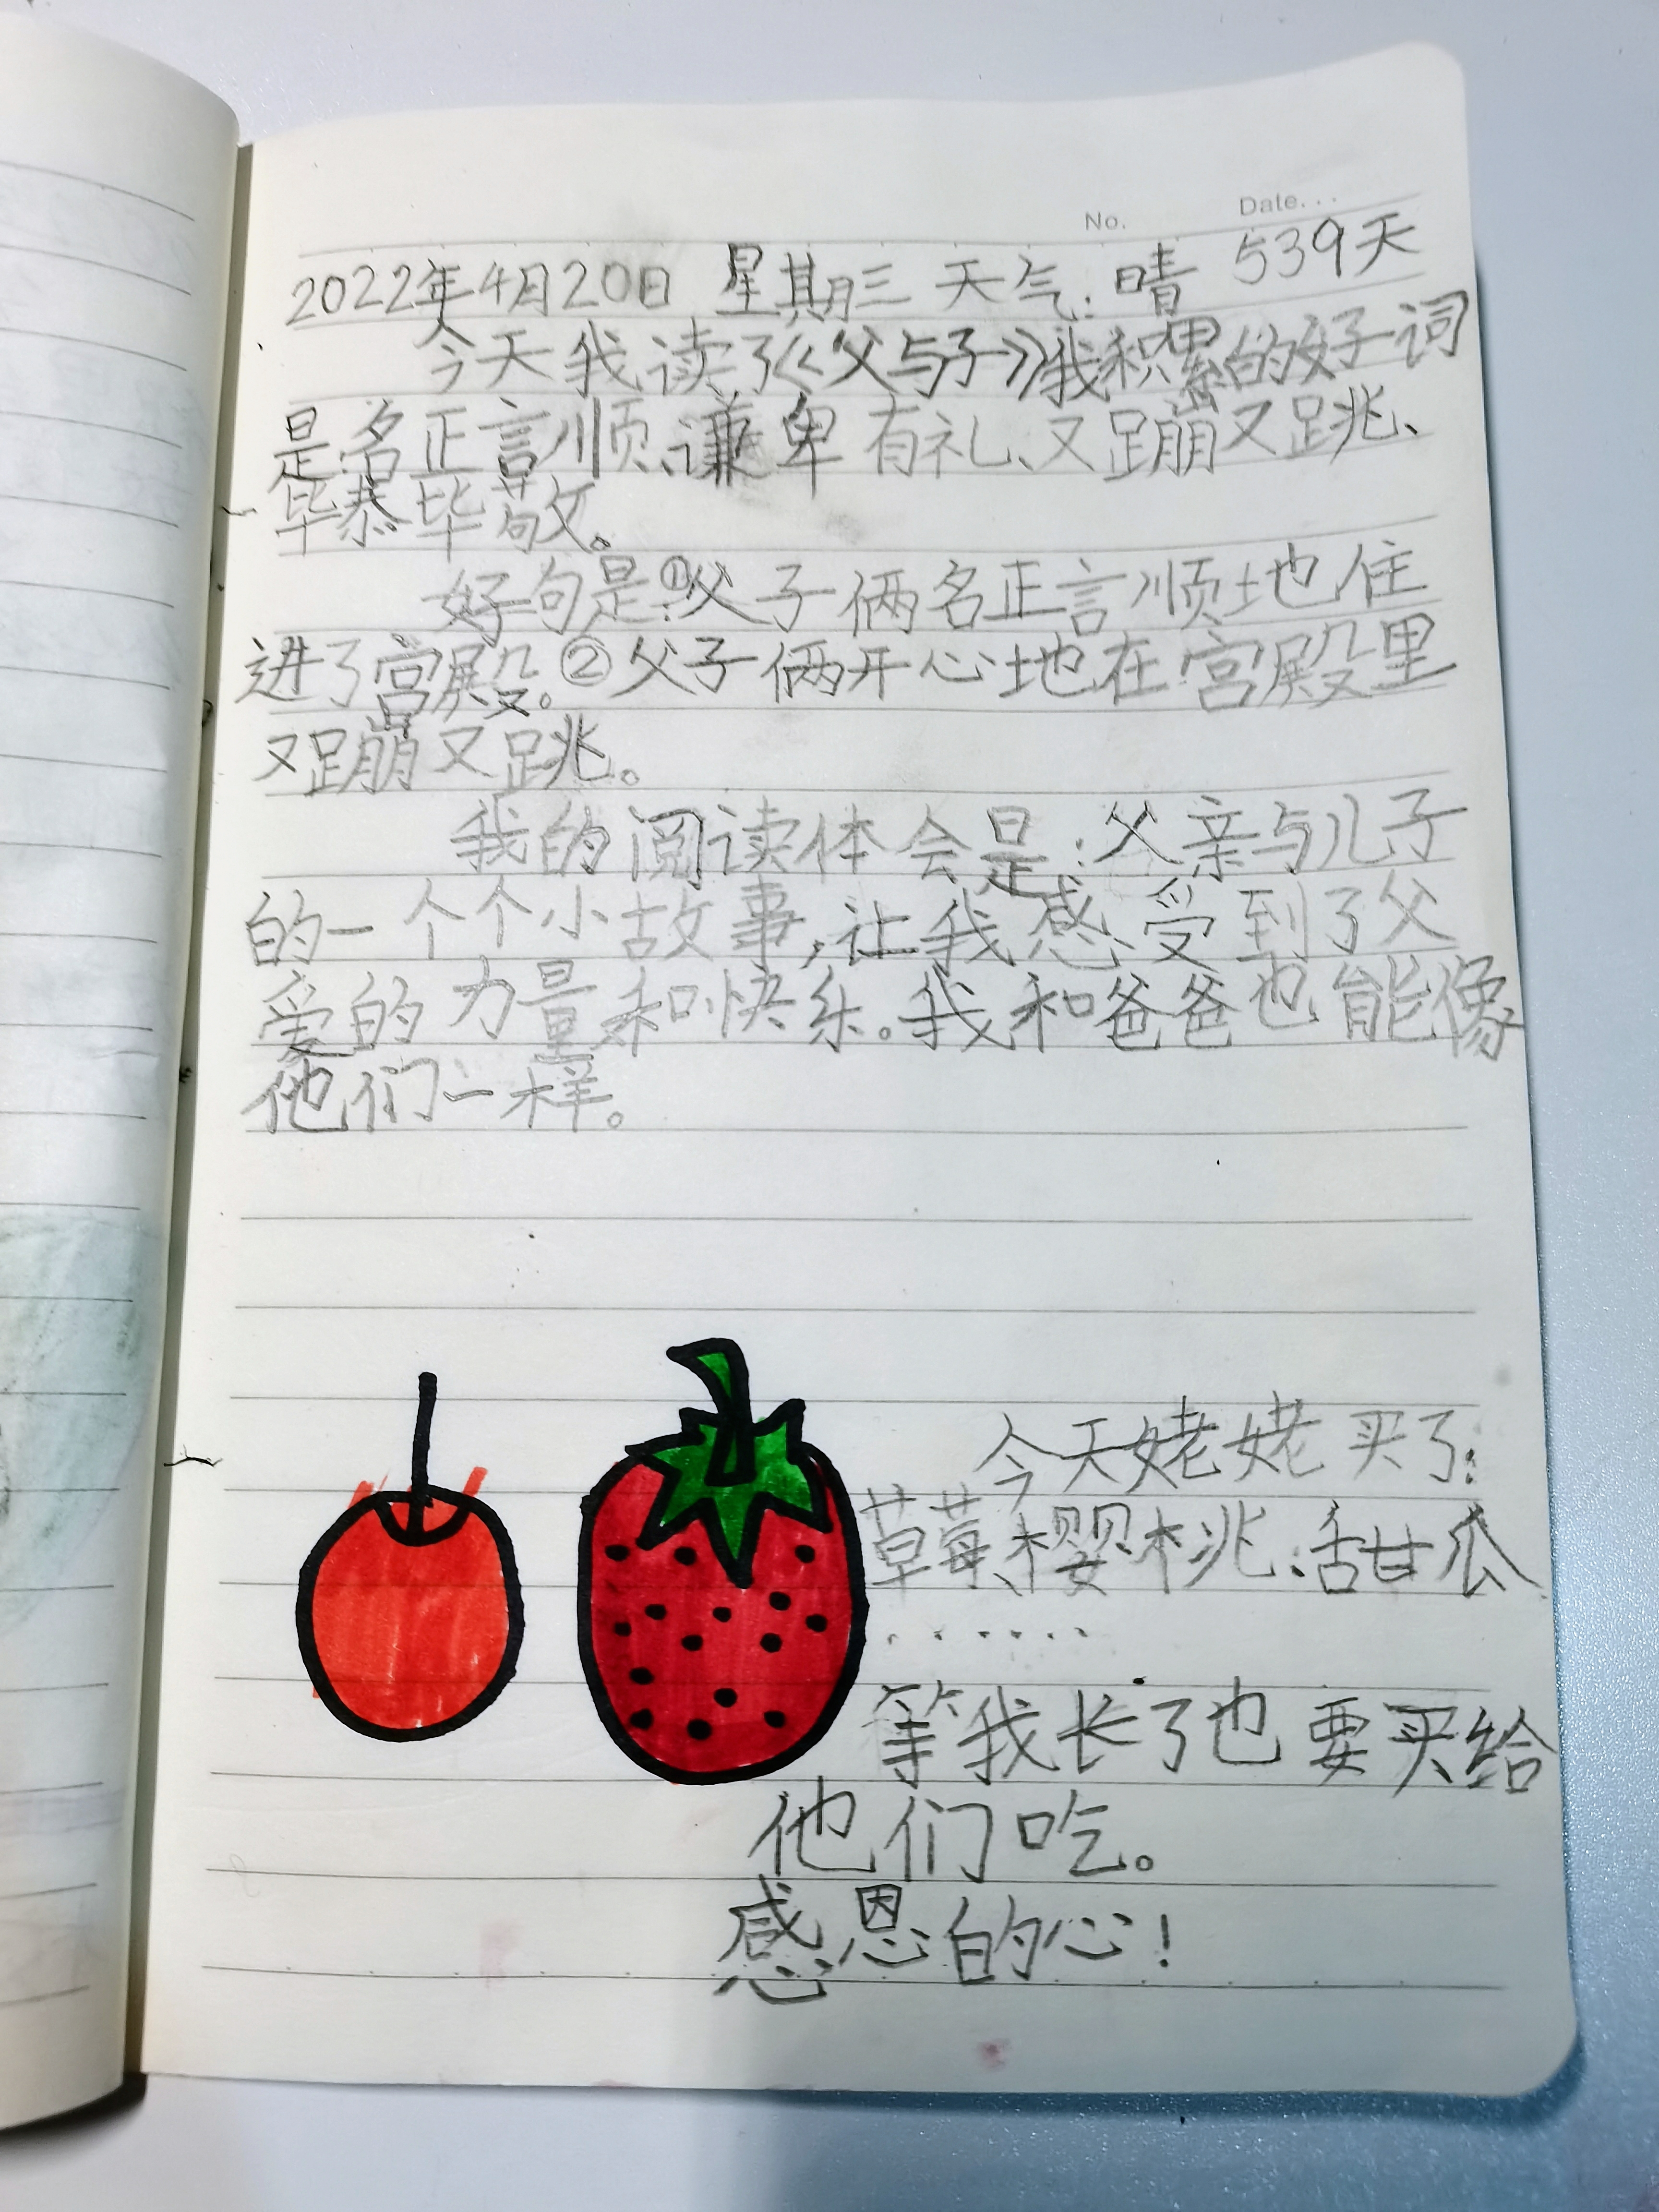 No.    Date...
2022年4月20日 星期三 天气:晴 539天
今天我读了《父与子》我积累的好词
是名正言顺、谦卑有礼、又蹦又跳、
毕恭毕敬。
好句是:①父子俩名正言顺地住
进了宫殿。②父子俩开心地在宫殿里
又蹦又跳。
我的阅读体会是:父亲与儿子
的一个个小故事,让我感受到了父
爱的力量和快乐。我和爸爸也能像
他们一样。
今天姥姥买了:
草莓、樱桃、甜瓜
······
等我长了也要买给
他们吃。
感恩的心!